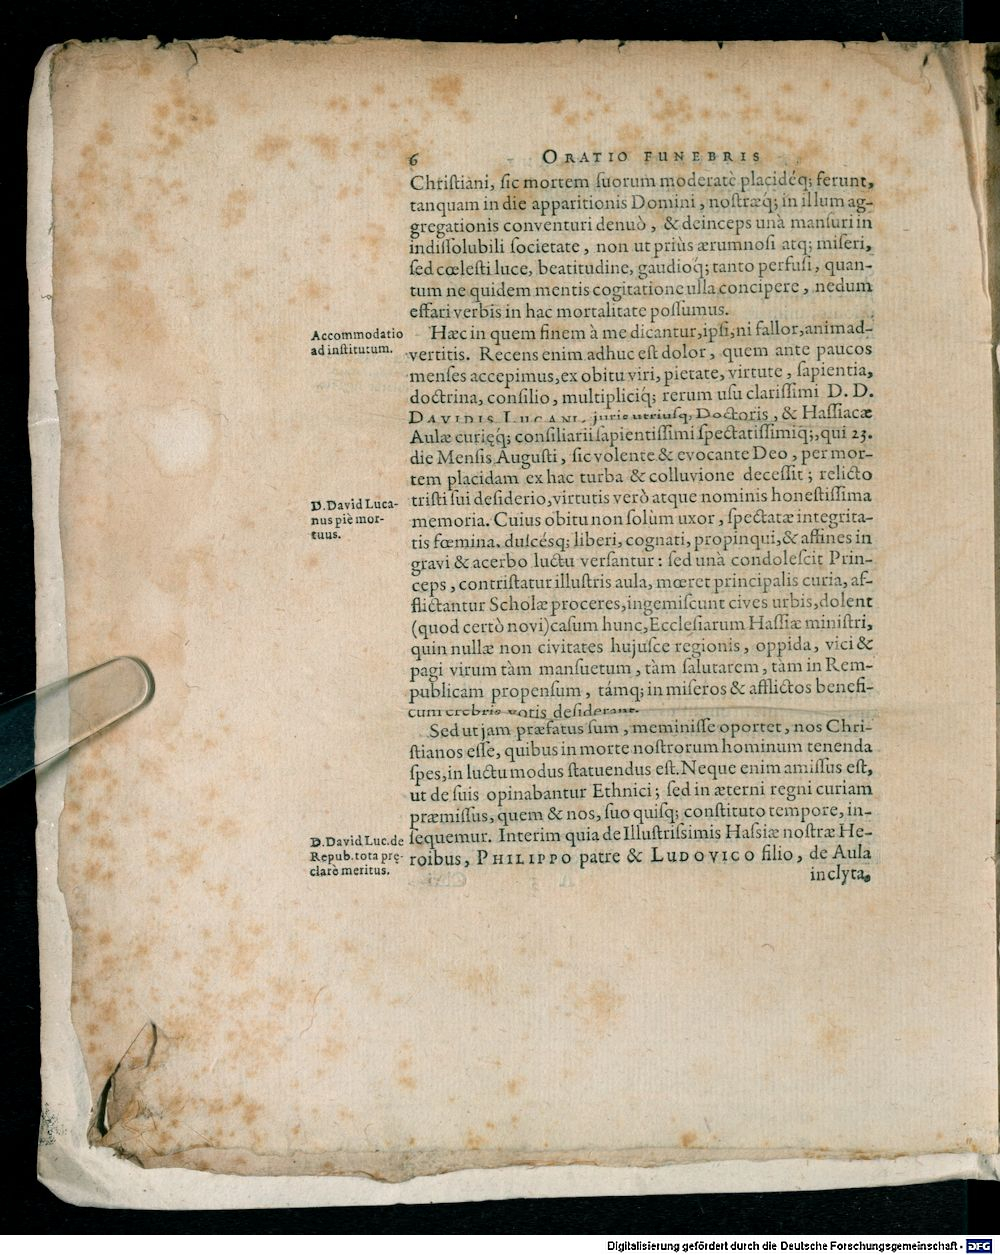 6 ORATIO FUNEBRIS
Chriſtiani, ſic mortem ſuorum moderatè placidéq; ferunt,
tanquam in die apparitionis Domini, noſtræq́; in illum ag-
gregationis conventuri denuò, & deinceps unà manſuri in
indiſſolubili ſocietate, non ut priùs ærumnoſi atq; miſeri,
ſed cœleſti luce, beatitudine, gaudioq́; tanto perfuſi, quan-
tum ne quidem mentis cogitatione ulla concipere, nedum
effari verbis in hac mortalitate poſſumus.
Accommodatio
ad inſtitutum.
Hæc in quem finem à me dicantur, ipſi, ni fallor, animad-
vertitis. Recens enim adhuc eſt dolor, quem ante paucos
menſes accepimus, ex obitu viri, pietate, virtute, ſapientia,
doctrina, conſilio, multipliciq́; rerum uſu clariſſimi D. D.
DAVIDIS LUCANI, juris utriuſq; Doctoris, & Haſſiacæ
Aulæ curięq́; conſiliarii ſapientiſſimi ſpectatiſſimiq;, qui 23.
die Menſis Auguſti, ſic volente & evocante Deo, per mor-
tem placidam ex hac turba & colluvione deceſſit; relicto
D. David Luca-
nus piè mor-
tuus.
triſti ſui deſiderio, virtutis verò atque nominis honeſtiſſima
memoria. Cuius obitu non ſolùm uxor, ſpectatæ integrita-
tis fœmina, dulcésq; liberi, cognati, propinqui, & affines in
gravi & acerbo luctu verſantur: ſed unà condoleſcit Prin-
ceps, contriſtatur illuſtris aula, mœret principalis curia, af-
flictantur Scholæ proceres, ingemiſcunt cives urbis, dolent
(quod certò novi) caſum hunc, Eccleſiarum Haſſiæ miniſtri,
quin nullæ non civitates hujuſce regionis, oppida, vici &
pagi virum tàm manſuetum, tàm ſalutarem, tàm in Rem-
publicam propenſum, támq; in miſeros & afflictos benefi-
cum crebris votis deſiderant.
Sed ut jam præfatus ſum, meminiſſe oportet, nos Chri-
ſtianos eſſe, quibus in morte noſtrorum hominum tenenda
ſpes, in luctu modus ſtatuendus eſt. Neque enim amiſſus eſt,
ut de ſuis opinabantur Ethnici; ſed in æterni regni curiam
præmiſſus, quem & nos, ſuo quiſq; conſtituto tempore, in-
D. David Luc. de
Repub. tota prę-
clarè meritus.
ſequemur. Interim quia de Illuſtriſsimis Haſsiæ noſtræ He-
roibus, PHILIPPO patre & LUDOVICO filio, de Aula
inclyta,
Digitalisierung gefördert durch die Deutsche Forschungsgemeinschaft - DFG